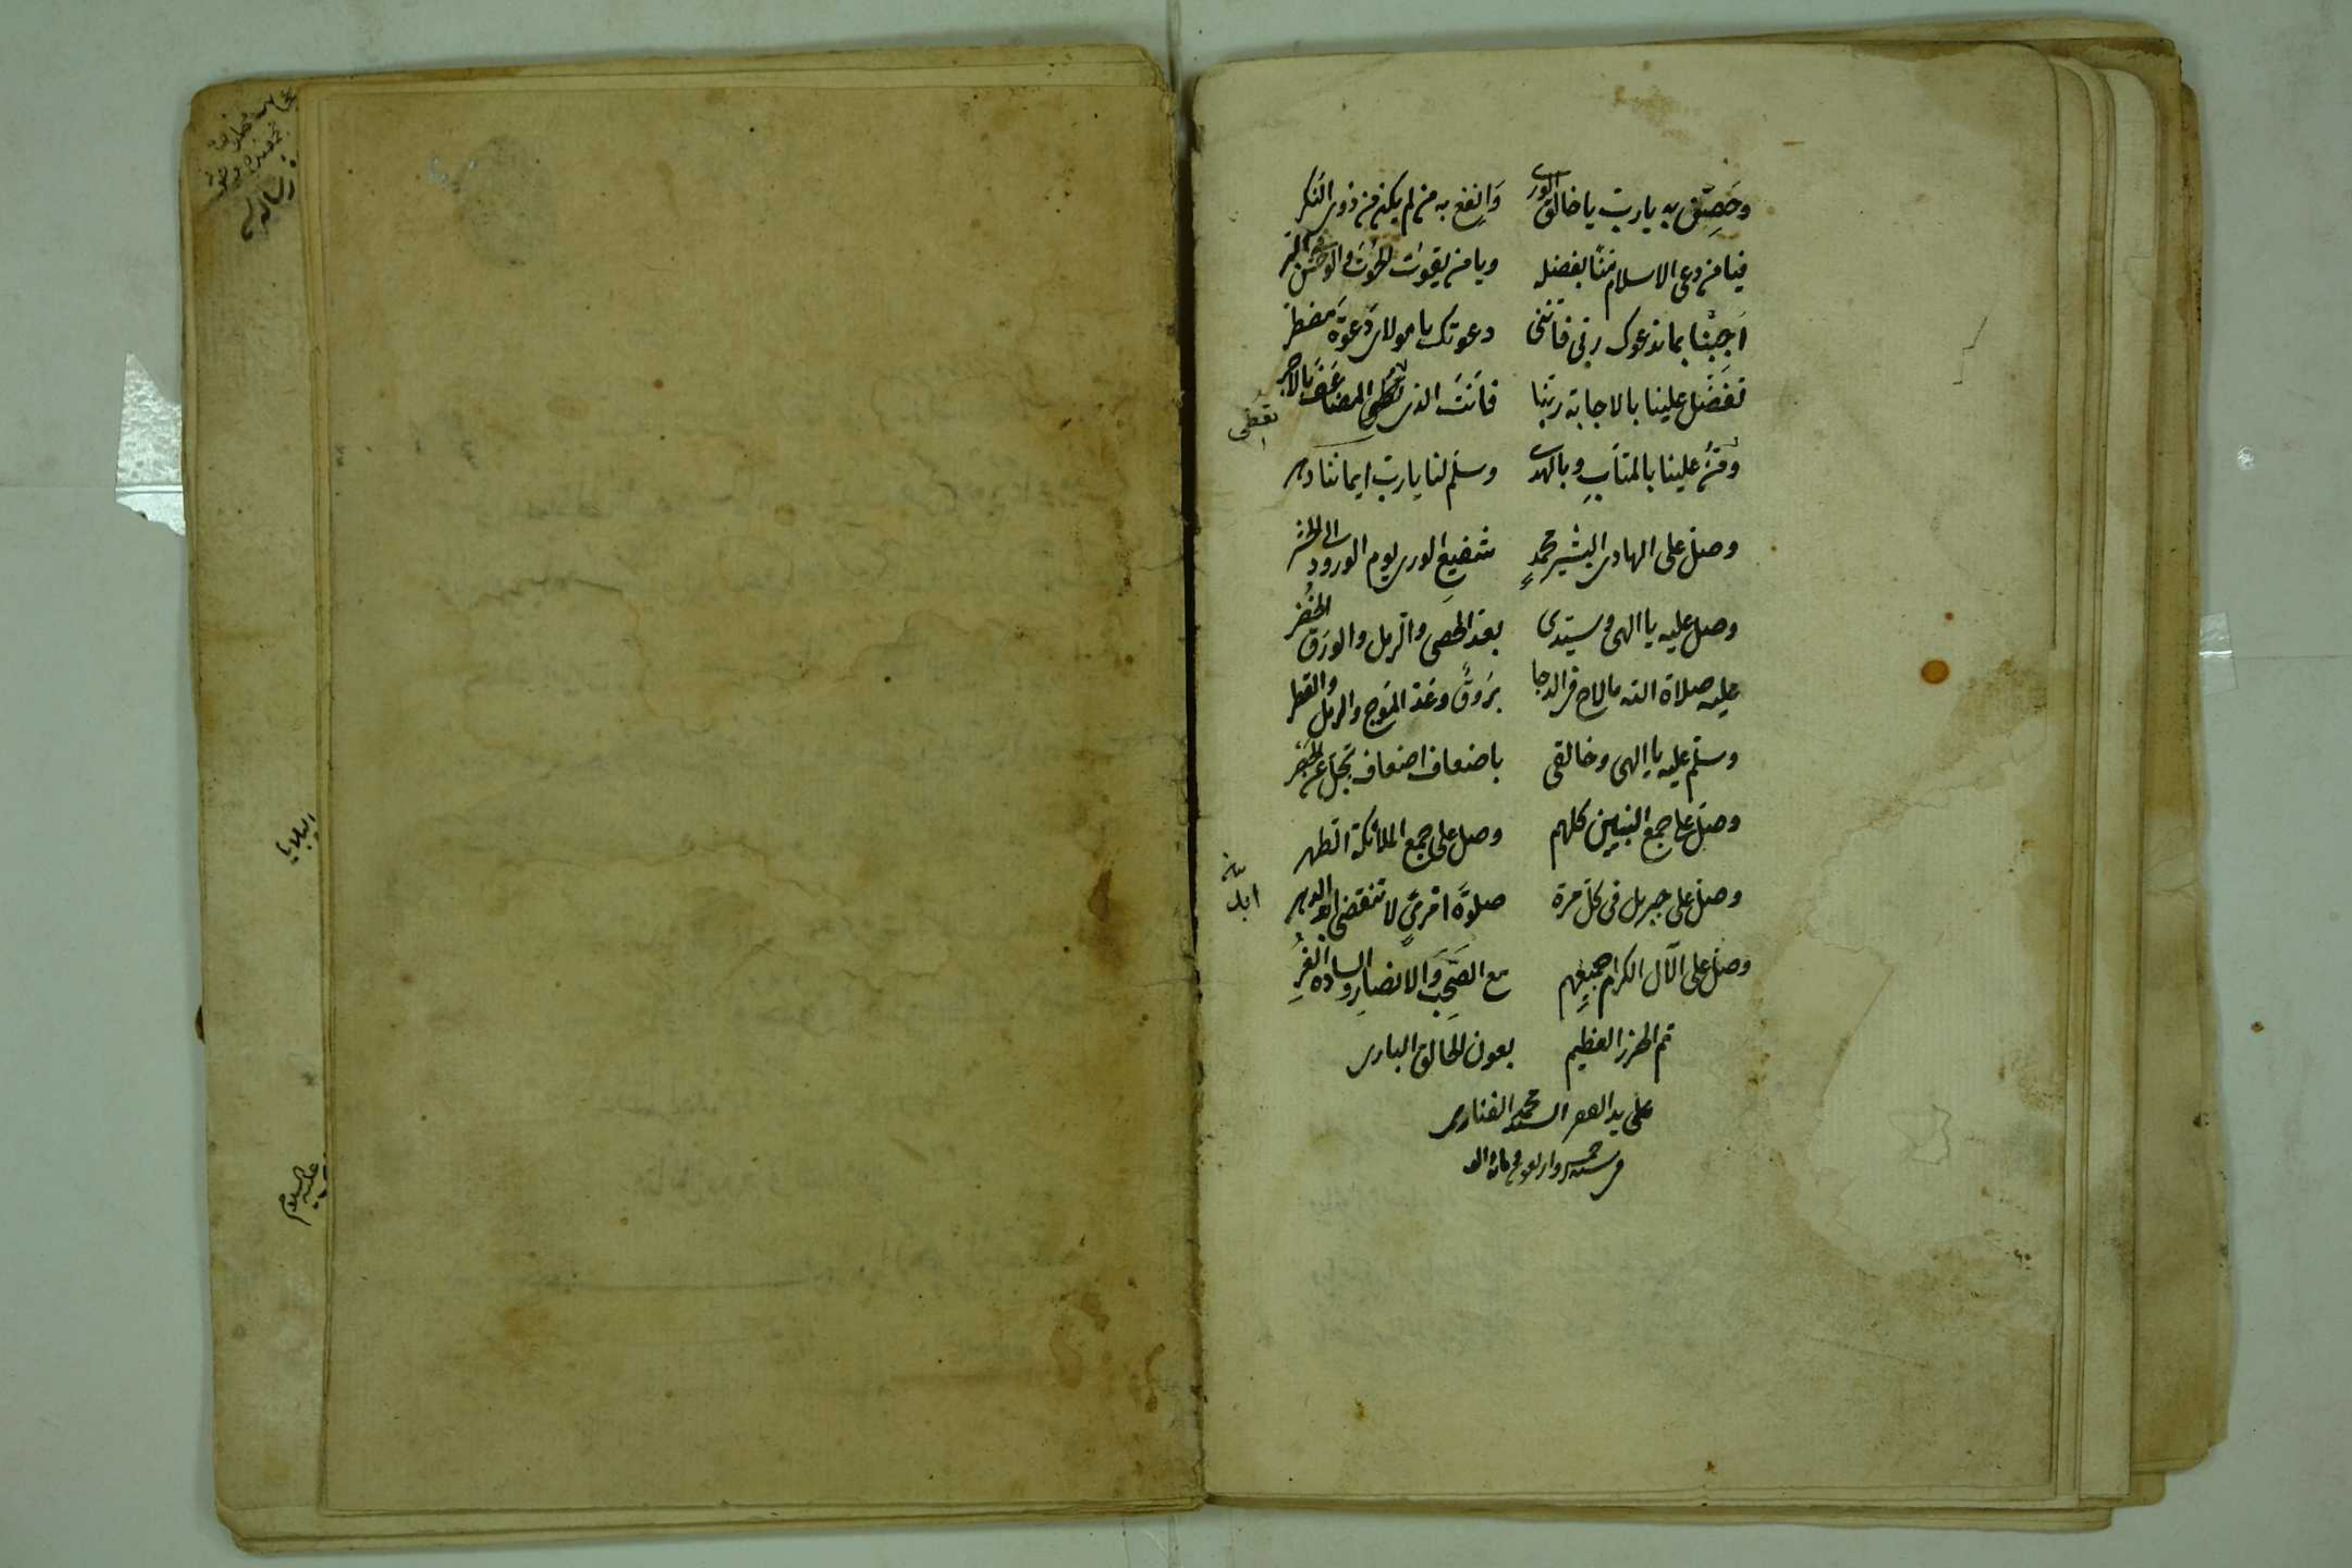 وحَصِّن به يا ربّ يا خالق الورى وَانفع به من لم يكن من ذوى النكر
فيا من دعى الاسلام منّا بفضله ويا من يقوت الحوت والوحش
اَجِبْنا بما ندعوك ربى فاننى دعوتك يا مولاى دَعْوَةَ مضطر
تفضّل علينا بالاجابة ربّنا فانتَ الذى تعطى المضاعَف بالاجر
تعطى
ومُنَّ علينا بالمتابِ وبالهدى وسلّم لنا يا ربّ ايماننا
وصلّ على الهادى البشير محمدٍ شفيعِ الورى يوم الورود الى الحشر
وصل عليه يا الهى وسيّدى بعدّ الحصى والرمل والورَق الخُضْر
عليه صلاة الله ما لاح فى الدجا بَرُوقٌ وعَدّ المَوج والرمل والقطر
وسلّم عليه يا الهى وخالقى باضعاف اضعاف تَجِلّ عن
وصلّ على جمع النبيين كلهم وصل على جمع الملائكة الطهر
وصلّ على جبريل فى كلّ مرّة صلوةً اخرىً لا تنقضى ابد الدهر
ابد
وصلّ على الآل الكرام جميعهم مع الصَحْب وَالانصارِ والساده الغُرِّ
تم الحرز العظيم بعون الخالق البارى
على يد السيد محمد الفنارى
البلايا
عليه السلام